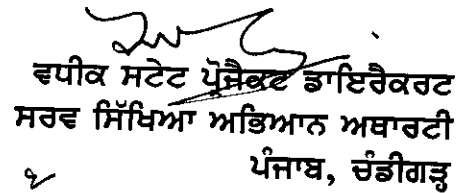 ਵਧੀਕ ਸਟੇਟ ਪ੍ਰੋਜੈਕਟ ਡਾਇਰੈਕਰਟ
ਸਰਵ ਸਿੱਖਿਆ ਅਭਿਆਨ ਅਥਾਰਟੀ
ਪੰਜਾਬ, ਚੰਡੀਗੜ੍ਹ